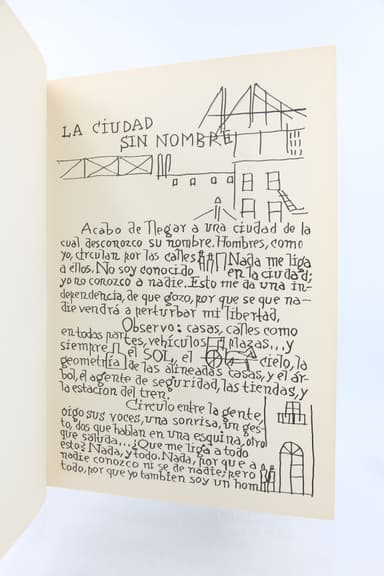 LA CIUDAD
SIN NOMBRE
Acabo de llegar a una ciudad de la
cual desconozco su nombre. Hombres, como
yo, circulan por las calles Nada me liga
a ellos. No soy conocido en la ciudad;
yo no conozco a nadie. Esto me da una in-
dependencia, de que gozo, por que se que na-
die vendrá a perturbar mi libertad,
Observo: casas, calles como
en todas partes, vehículos plazas...y
siempre el SOL, el cielo, la
geometría de las alineadas casas, y el ár-
bol, el agente de seguridad, las tiendas, y
la estación del tren.
Circulo entre la gente,
oigo sus voces, una sonrisa, un ges-
to, dos que hablan en una esquina, otro
que saluda... ¿Que me liga a todo
esto? Nada, y todo. Nada, por que a
nadie conozco ni se de nadie; pero
todo, por que yo tambien soy un hom